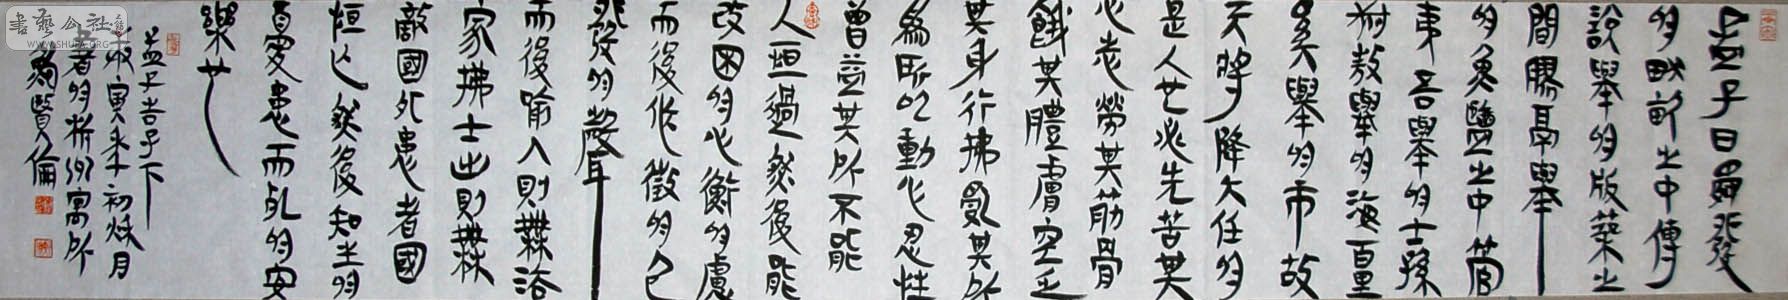 孟子曰舜發
於畎畝之中傅
說舉於版築之
間膠鬲舉
於魚鹽之中管
夷吾舉於士孫
叔敖舉於海百里
奚舉於市故
天將降大任於
是人也必先苦其
心志勞其筋骨
餓其體膚空乏
其身行拂亂其所
為所以動心忍性
曾益其所不能
人恒過然後能
改困於心衡於慮
而後作徵於色
發於聲
而後喻入則無法
家拂士出則無
敵國外患者國
恒亡然後知生於
憂患而死於安
樂也
孟子告子下
寅年初秋月
書於杭州寓所
賢倫
書藝公社
WWW.SHUFA.ORG